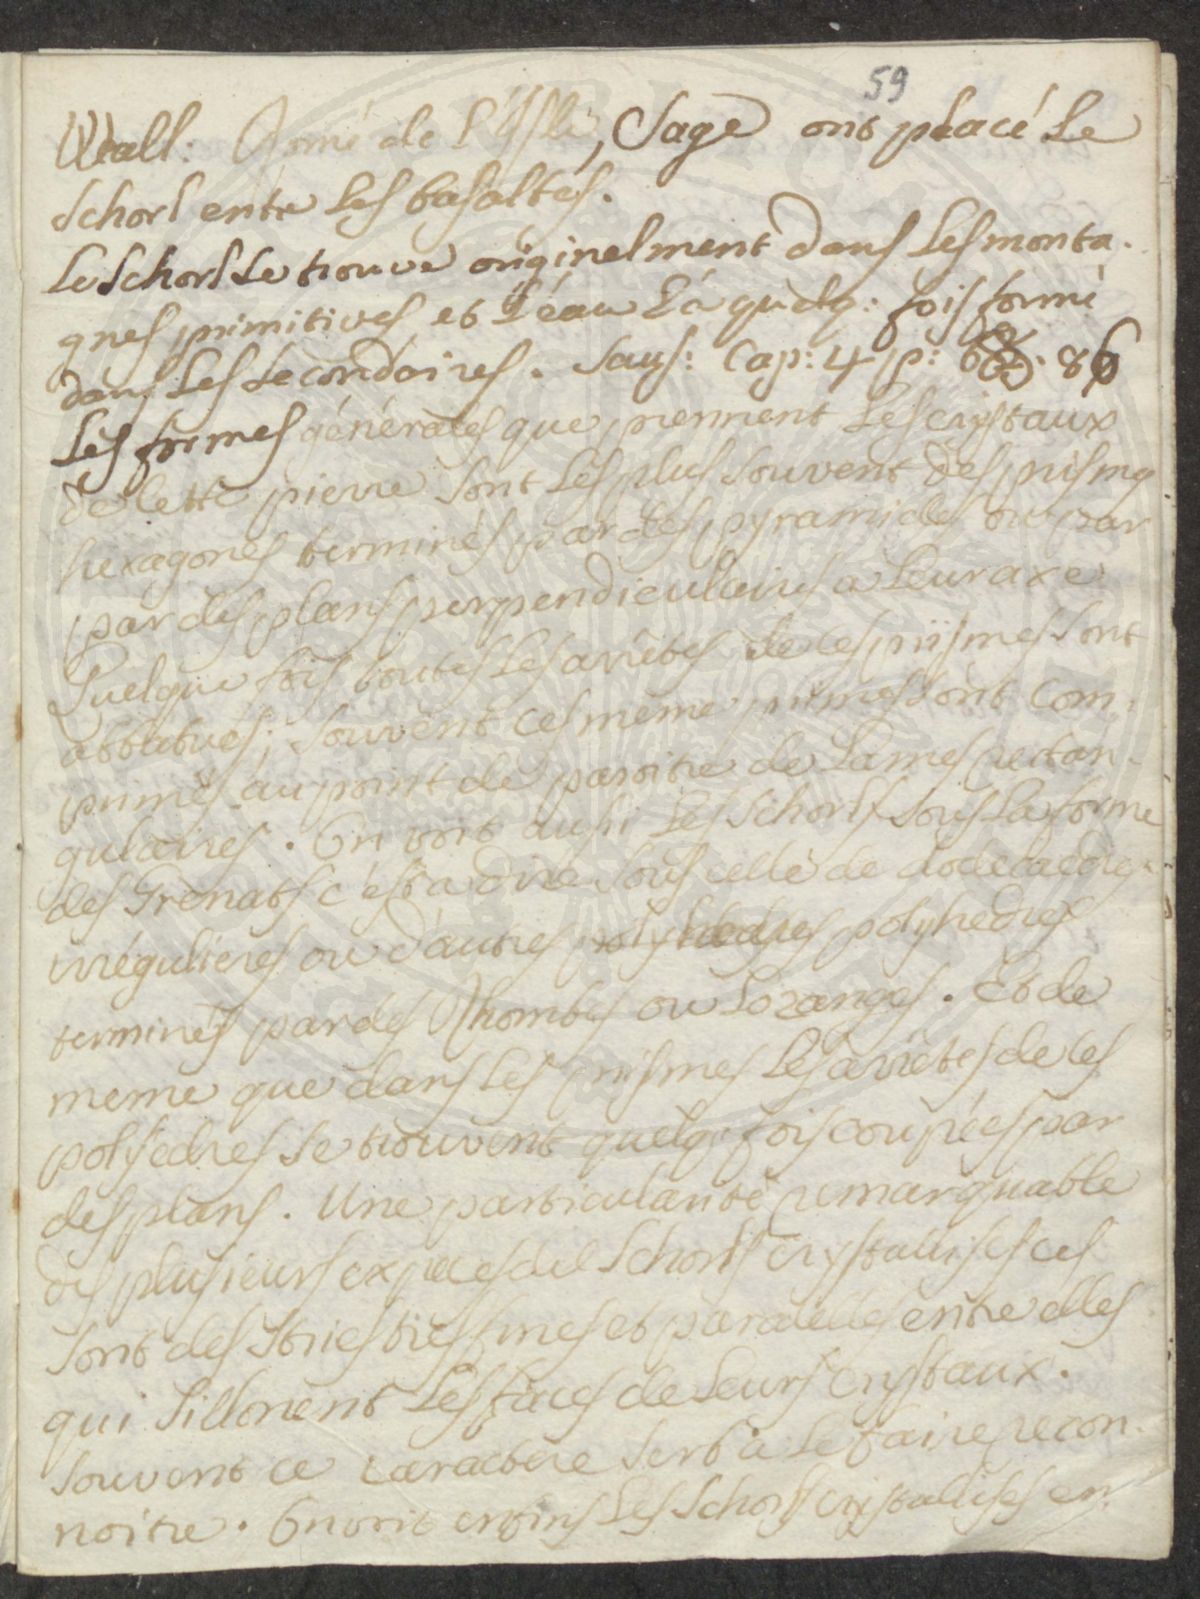 59
Wall: Romé de l'Isle, Sage ont placé le
Schorl entre les basaltes.
Le Schorl se trouve originelment dans les monta-
gnes primitives et l'eau l'a quelq: fois formé
dans les secondaires. Saus: Cap: 4 p: 86
Les formes générales que prennent les crystaux
de cette pierre sont les plus souvent des prismes
hexagones terminés par des pyramides ou par
par des plans perpendiculaires a leur axe
Quelque fois toutes les arrêtes de ces prismes sont
abbatues; souvent ces meme prismes sont com-
primés au point de paroitre de lames rectan-
gulaires. On voit aussi les Schorls sous la forme
des Grenats c'est a dire sous celle de dodecaedres
irréguliéres ou d'autres polyhedres
terminés par des Rhombes ou Lozanges. Et de
meme que dans les prismes les arrêtes de ces
polyedres se trouvent quelq: fois coupées par
des plans. Une particularité remarquable
des plusieurs expeces del Schorls crystallisés ces
sont des stries tres fines et paralleles entre elles
qui sillonent les faces de leurs crystaux.
Souvent ce caractere sert à le faire recon-
noitre. On voit enfins les Schorls cristallisés en